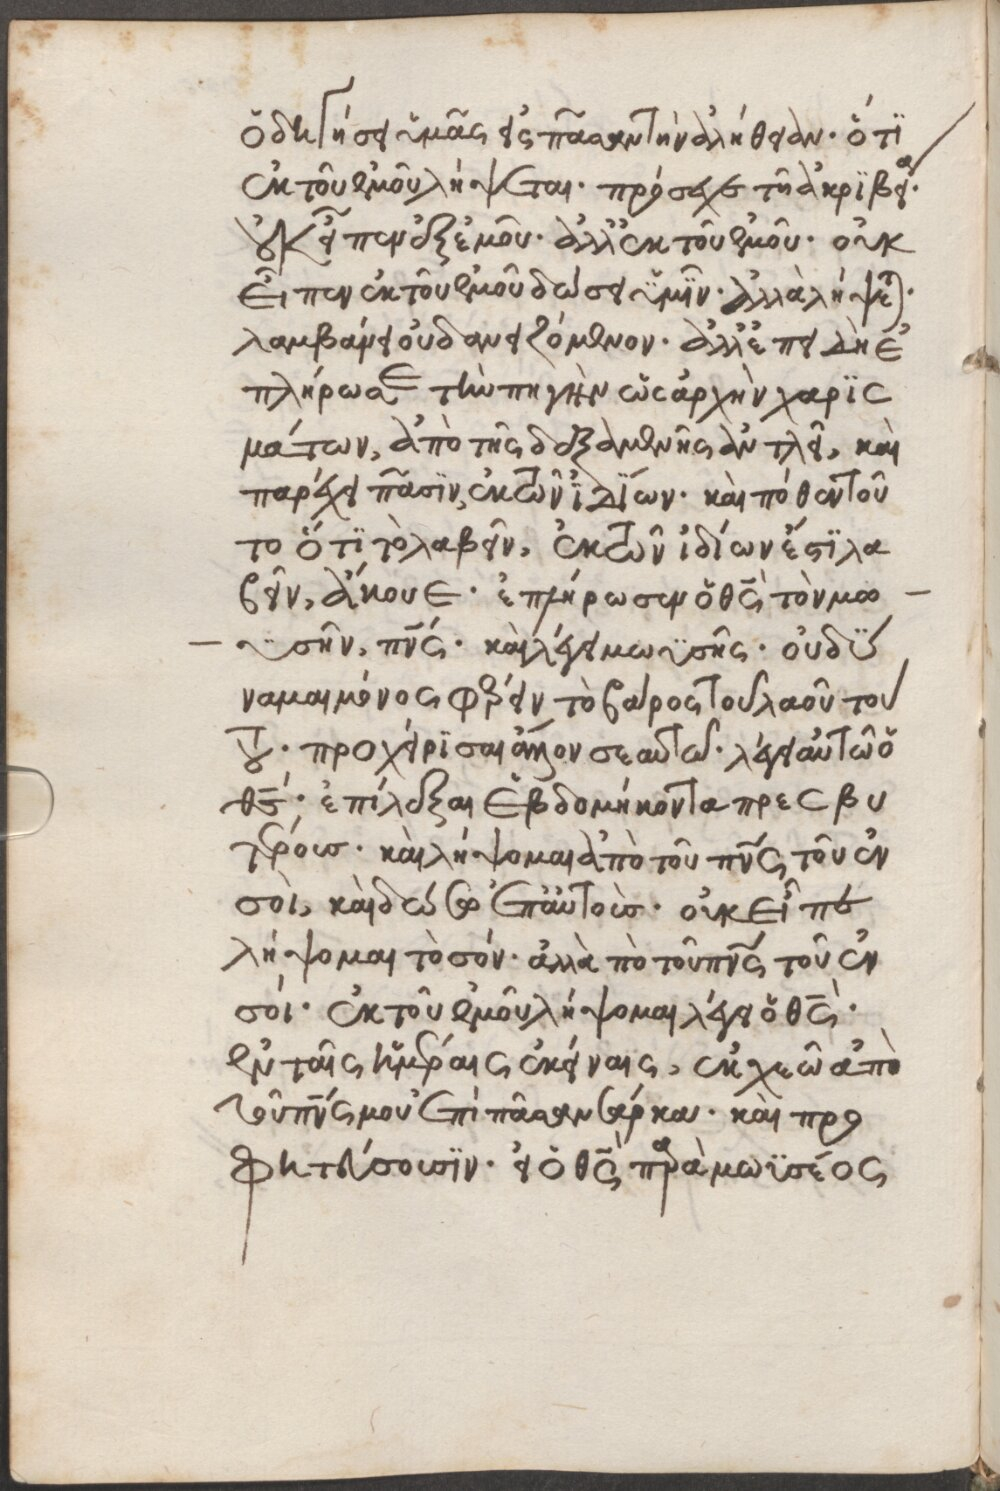 ὁδηγήσει ὑμᾶς εἰς πᾶσαν τὴν ἀλήθειαν· ὅτϊ
ἐκ τοῦ ἐμοῦ λήψεται· πρόσεχε τῆ ἀκρϊβεία·
οὐκ εἶπεν ἐξ ἐμοῦ· ἀλλ' ἐκ τοῦ ἐμοῦ· οὐκ
εἶπεν ἐκ τοῦ ἐμοῦ δώσει ὑμῖν· ἀλλὰ λήψεται·
λαμβάνει οὐ δανειζόμενον· ἀλλ' ἐπειδὴ ἐ
πλήρωσε τὴν πηγὴν ὡς ἀρχὴν χαρϊσ
μάτων, ἀπὸ τῆς δεξαμενῆς ἀντλεῖ, καὶ
παρέχει πᾶσϊν, ἐκ τῶν ἰδϊων· καὶ πόθεν τοῦ
το ὅτϊ τὸ λαβεῖν, ἐκ τῶν ἰδίων ἐστϊ λα
βεῖν, ἄκουε· ἐπλήρωσεν ὁ θς τὸν μω
ϋσῆν, πνς· καὶ λέγει μωϋσῆς· οὐ δύ
ναμαι μόνος φέρειν τὸ βάρος τοῦ λαοῦ του
του· προχείρϊσαι ἄλλον σεαυτῶ· λέγει αὐτῶ ὁ
θς· ἐπίλεξαι ἑβδομήκοντα πρεσβυ
τέρους· καὶ λήψομαι ἀπὸ τοῦ πνς τοῦ ἐν
σοὶ, καὶ δώσω ἐπ' αὐτοὺς· οὐκ εἶπε
λήψομαι τὸ σόν· ἀλλὰ πὸ τοῦ πνς τοῦ ἐν
σοί· ἐκ τοῦ ἐμοῦ λήψομαι λέγει ὁ θς·
ἐν ταῖς ἡμέραις ἐκείναις, ἐκχεῶ ἀπὸ
τοῦ πνς μου ἐπὶ πᾶσαν σάρκα· καὶ προ
φητεύσουσϊν· εἰ ὁ θς παρὰ μωϋσέος